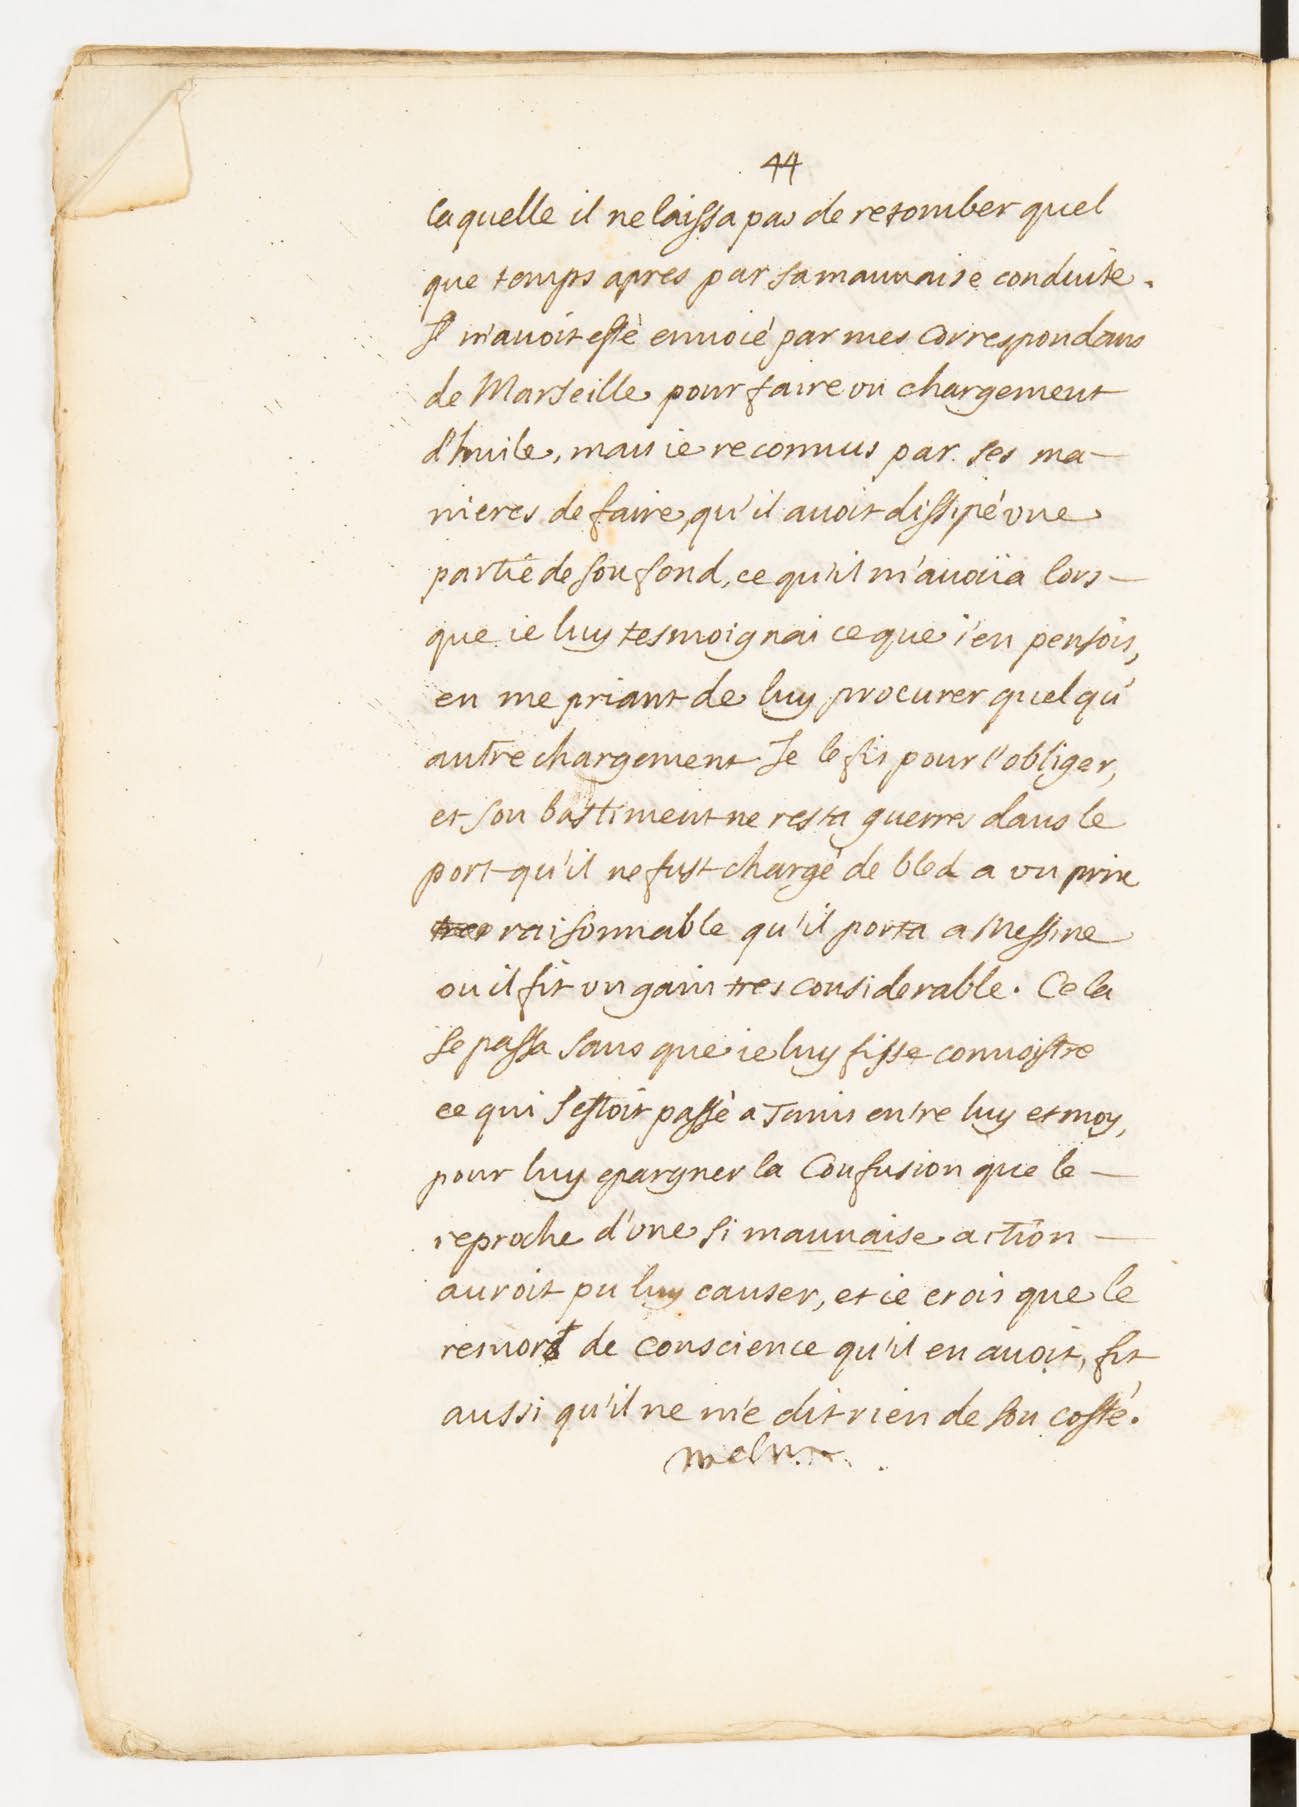 44
laquelle il ne laissa pas de retomber quel
que temps apres par sa mauuaise conduite.
Il m'auoit esté enuoié par mes Correspondans
de Marseille pour faire vn chargement
d'huile, mais ie reconnus par ses ma-
nieres de faire, qu'il auoit dissipé vne
partie de son fond, ce qu'il m'auoüa lors-
que ie luy tesmoignai ce que i'en pensois,
en me priant de luy procurer quelqu'
autre chargement Je le fis pour l'obliger,
et son bastiment ne resta guerres dans le
port qu'il ne fust chargé de bled a vn prix
tres raisonnable qu'il porta a Messine
ou il fit vn gain tres considerable. Cela
se passa sans que ie luy fisse connoistre
ce qui s'estoit passé a Tunis entre luy et moy,
pour luy epargner la Confusion que le-
reproche d'vne si mauuaise action-
auroit pu luy causer, et ie crois que le
remort de conscience qu'il en auoit, fit
aussi qu'il ne m'e dit rien de son costé.